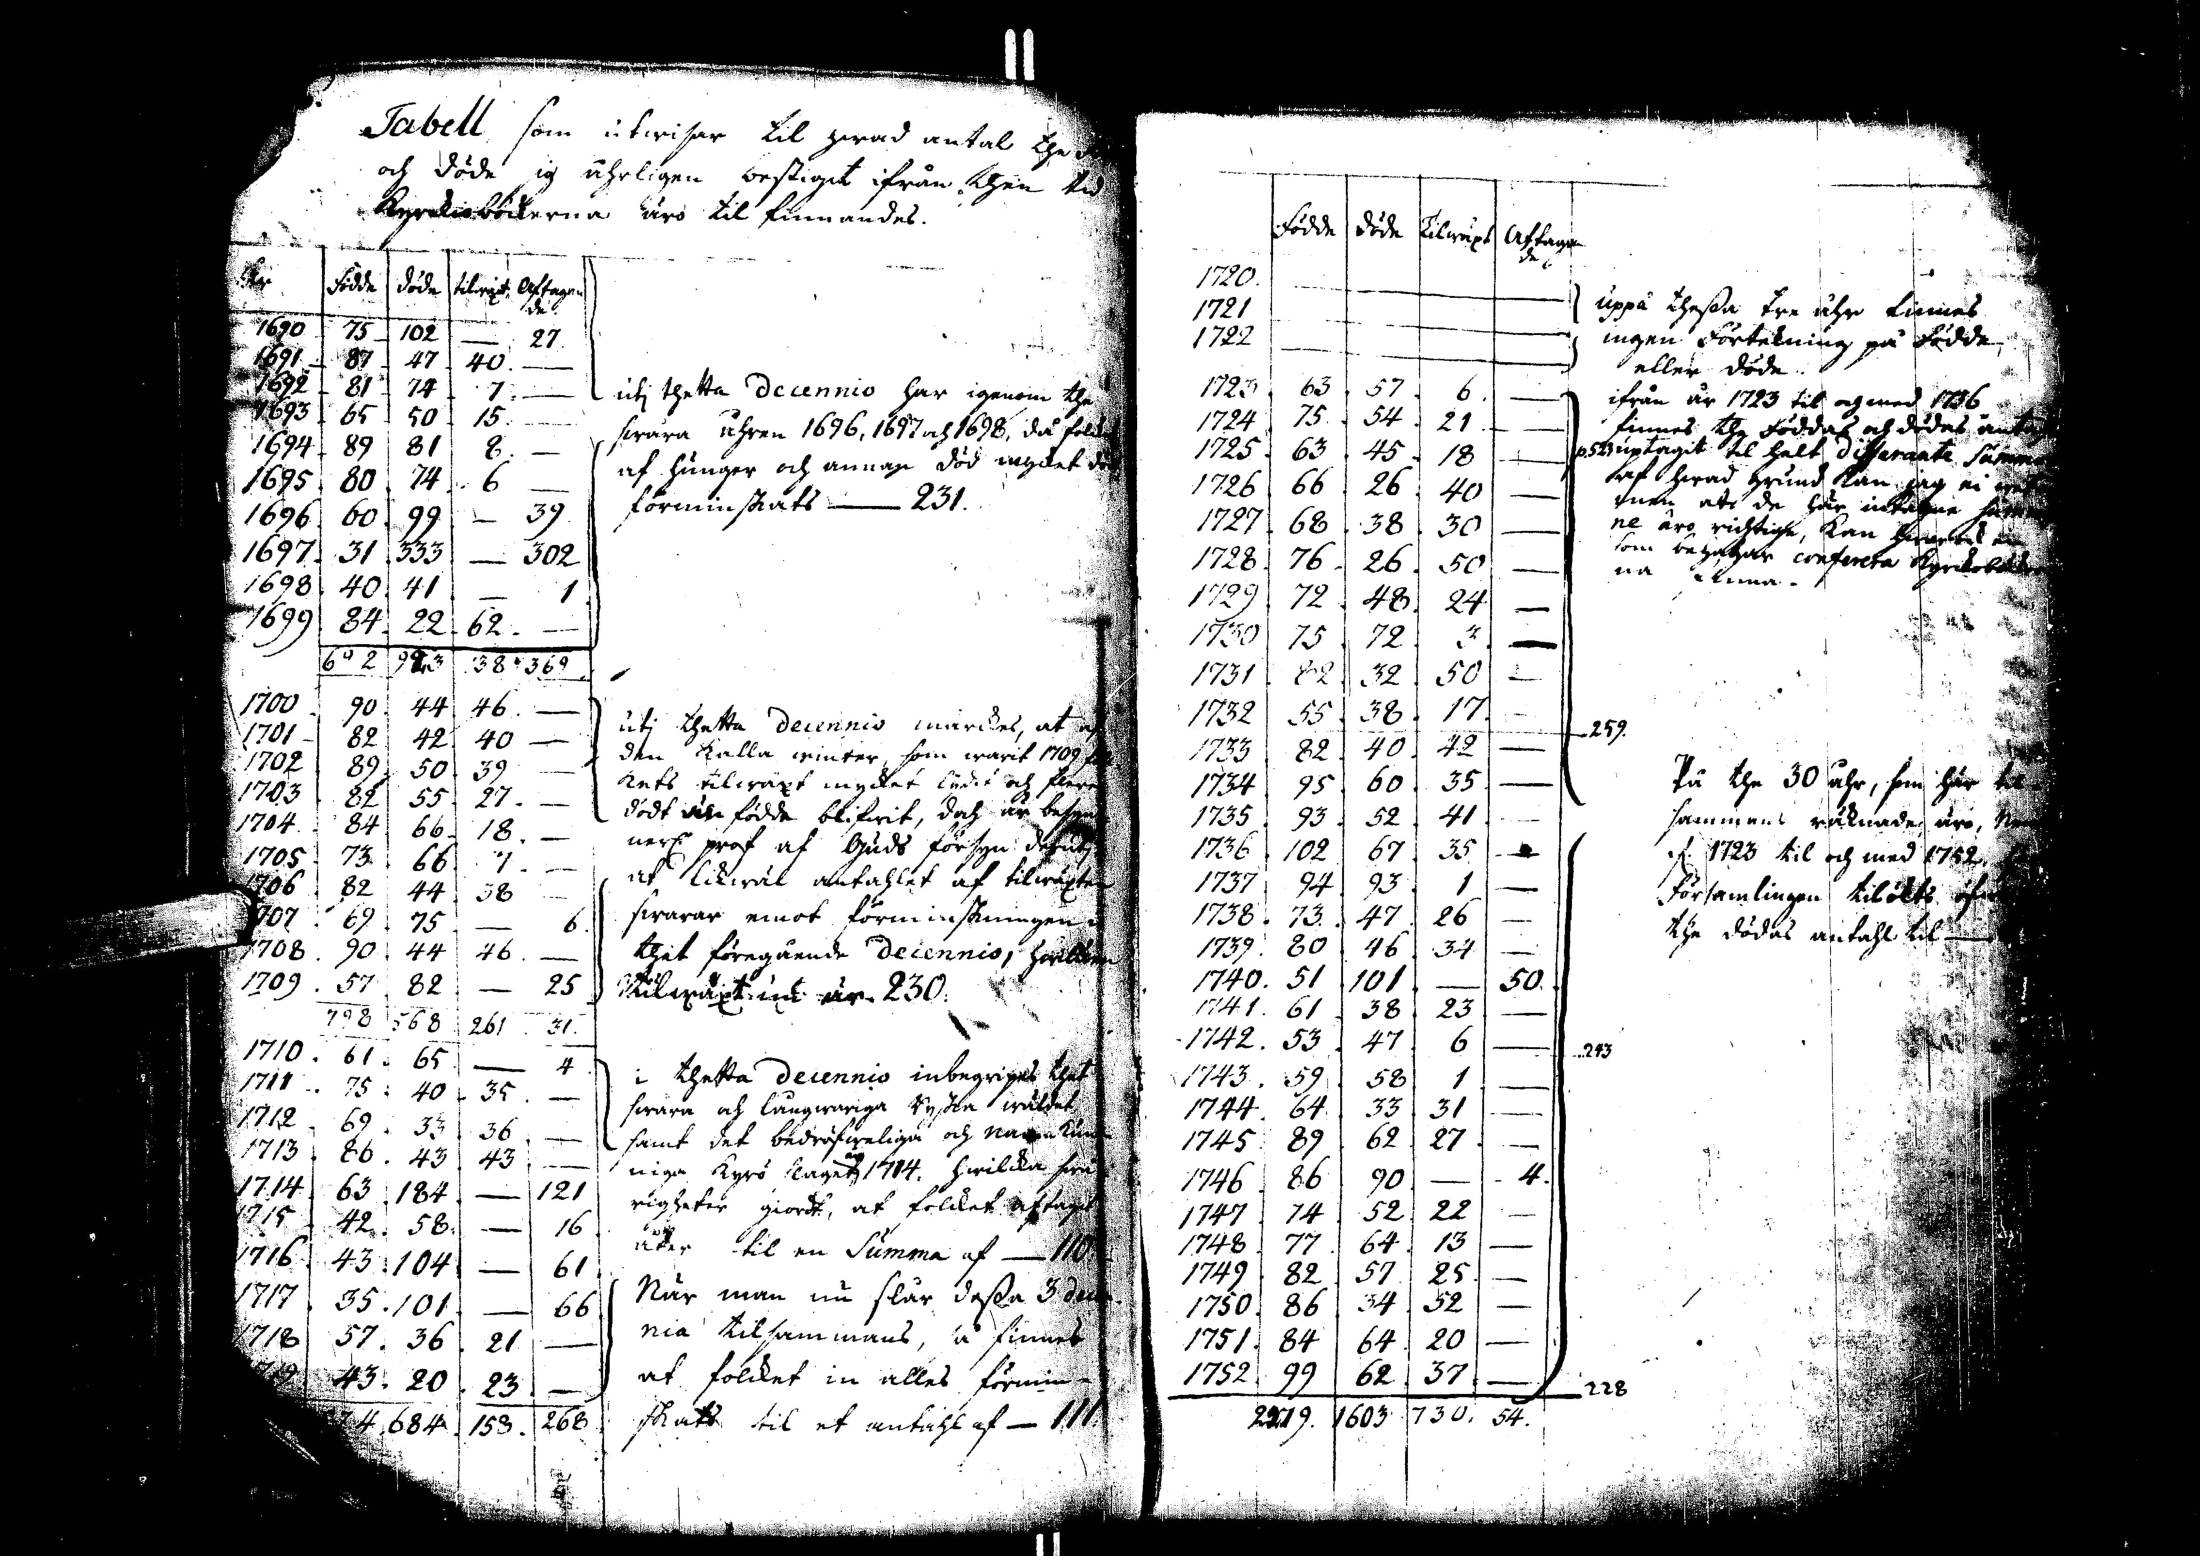 Tabell som utwisar til hwad antal the
och döde sig åhrligen bestigit ifrån then tid
Kyrckioböckerna äro til finnandes.
Åhr Födde döde tilwäxt Aftagande
1690 75 102 — 27
1691 87 47 40 —
1692 81 74 7 —
1693 65 50 15 —
1694 89 81 8 —
1695 80 74 6 —
1696 60 99 — 39
1697 31 333 — 302
1698 40 41 — 1
1699 84 22 62 —
692 923 138 369
utj thetta Decennio har igenom the
swåra åhren 1696, 1697 och 1698, då folcket
af hunger och annan död mycket
förminskats — 231.
1700 90 44 46 —
1701 82 42 40 —
1702 89 50 39 —
1703 82 55 27 —
1704 84 66 18 —
1705 73 66 7 —
1706 82 44 38 —
1707 69 75 — 6
1708 90 44 46 —
1709 57 82 — 25
798 568 261 31
utj thetta Decennio märckes, at af
den kalla winter, som warit 1709
kets tilwäxt mycket lidit och flere
dödt än födde blifwit, doch är
prof af Guds försyn derutj
at likwäl antahlet af tilwäxten
swarar emot förminskningen i
thet föregående Decennio, hwilcken
tilwäxt är 230.
1710 61 65 — 4
1711 75 40 35 —
1712 69 33 36 —
1713 86 43 43 —
1714 63 184 — 121
1715 42 58 — 16
1716 43 104 — 61
1717 35 101 — 66
1718 57 36 21 —
1719 43 20 23 —
574 684 158 268
i thetta Decennio inbegripes thet
swåra och långwariga Ryska wäldet
samt det bedröfweliga och namnkun-
niga Kyrö slaget 1714. hwilcka swå-
righeter giordt, at folcket aftagit
åter til en Summa af — 110.
När man nu slår dessa 3 decen-
nia tilsammans, så finnes
at folcket in alles förmin-
skats til et antahl af — 111.
Födde döde tilwäxt Aftagande
1720
1721
1722
1723 63 57 6 —
1724 75 54 21 —
1725 63 45 18 —
1726 66 26 40 —
1727 68 38 30 —
1728 76 26 50 —
1729 72 48 24 —
1730 75 72 3 —
1731 82 32 50 —
1732 55 38 17 —
259.
1733 82 40 42 —
1734 95 60 35 —
1735 93 52 41 —
1736 102 67 35 —
1737 94 93 1 —
1738 73 47 26 —
1739 80 46 34 —
1740 51 101 — 50.
1741 61 38 23 —
1742 53 47 6 —
243
1743 59 58 1 —
1744 64 33 31 —
1745 89 62 27 —
1746 86 90 — 4.
1747 74 52 22 —
1748 77 64 13 —
1749 82 57 25 —
1750 86 34 52 —
1751 84 64 20 —
1752 99 62 37 —
228
2279. 1603 730. 54.
uppå thessa tre åhr finnes
ingen Förtekning på Födde
eller döde.
ifrån år 1723 til och med 1736
finnes the Föddas och dödas antahl
uptagit til helt differante Summor
af hwad grund kan jag ei
men at de här intagne
ne äro richtige, kan
som behagar conferera Kyrckoböcker
na finna.
På the 30 åhr, som här til-
sammans räknade äro,
1723 til och med 1752.
Församlingen tilökts öfwer
the dödas antahl til —